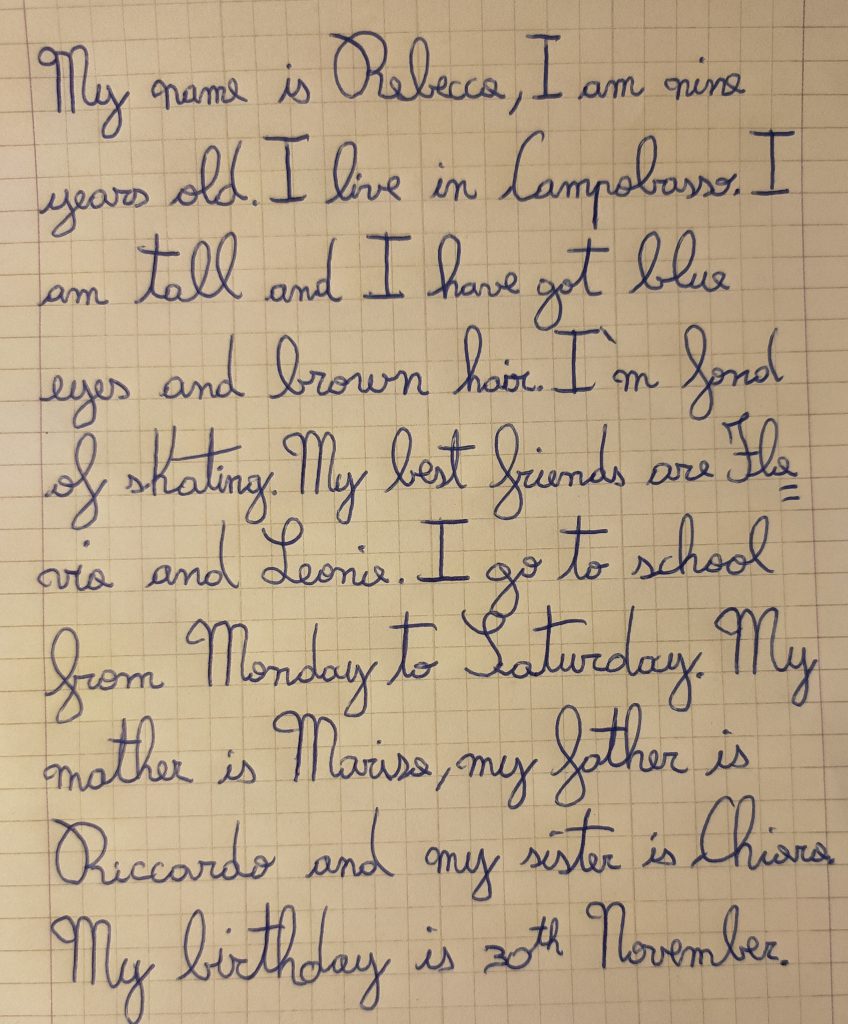 My name is Rebecca, I am nine
years old. I live in Campobasso. I
am tall and I have got blue
eyes and brown hair. I'm fond
of skating. My best friends are Fla=
via and Leonia. I go to school
from Monday to Saturday. My
mother is Marisa, my father is
Riccardo and my sister is Chiara.
My birthday is 30th November.